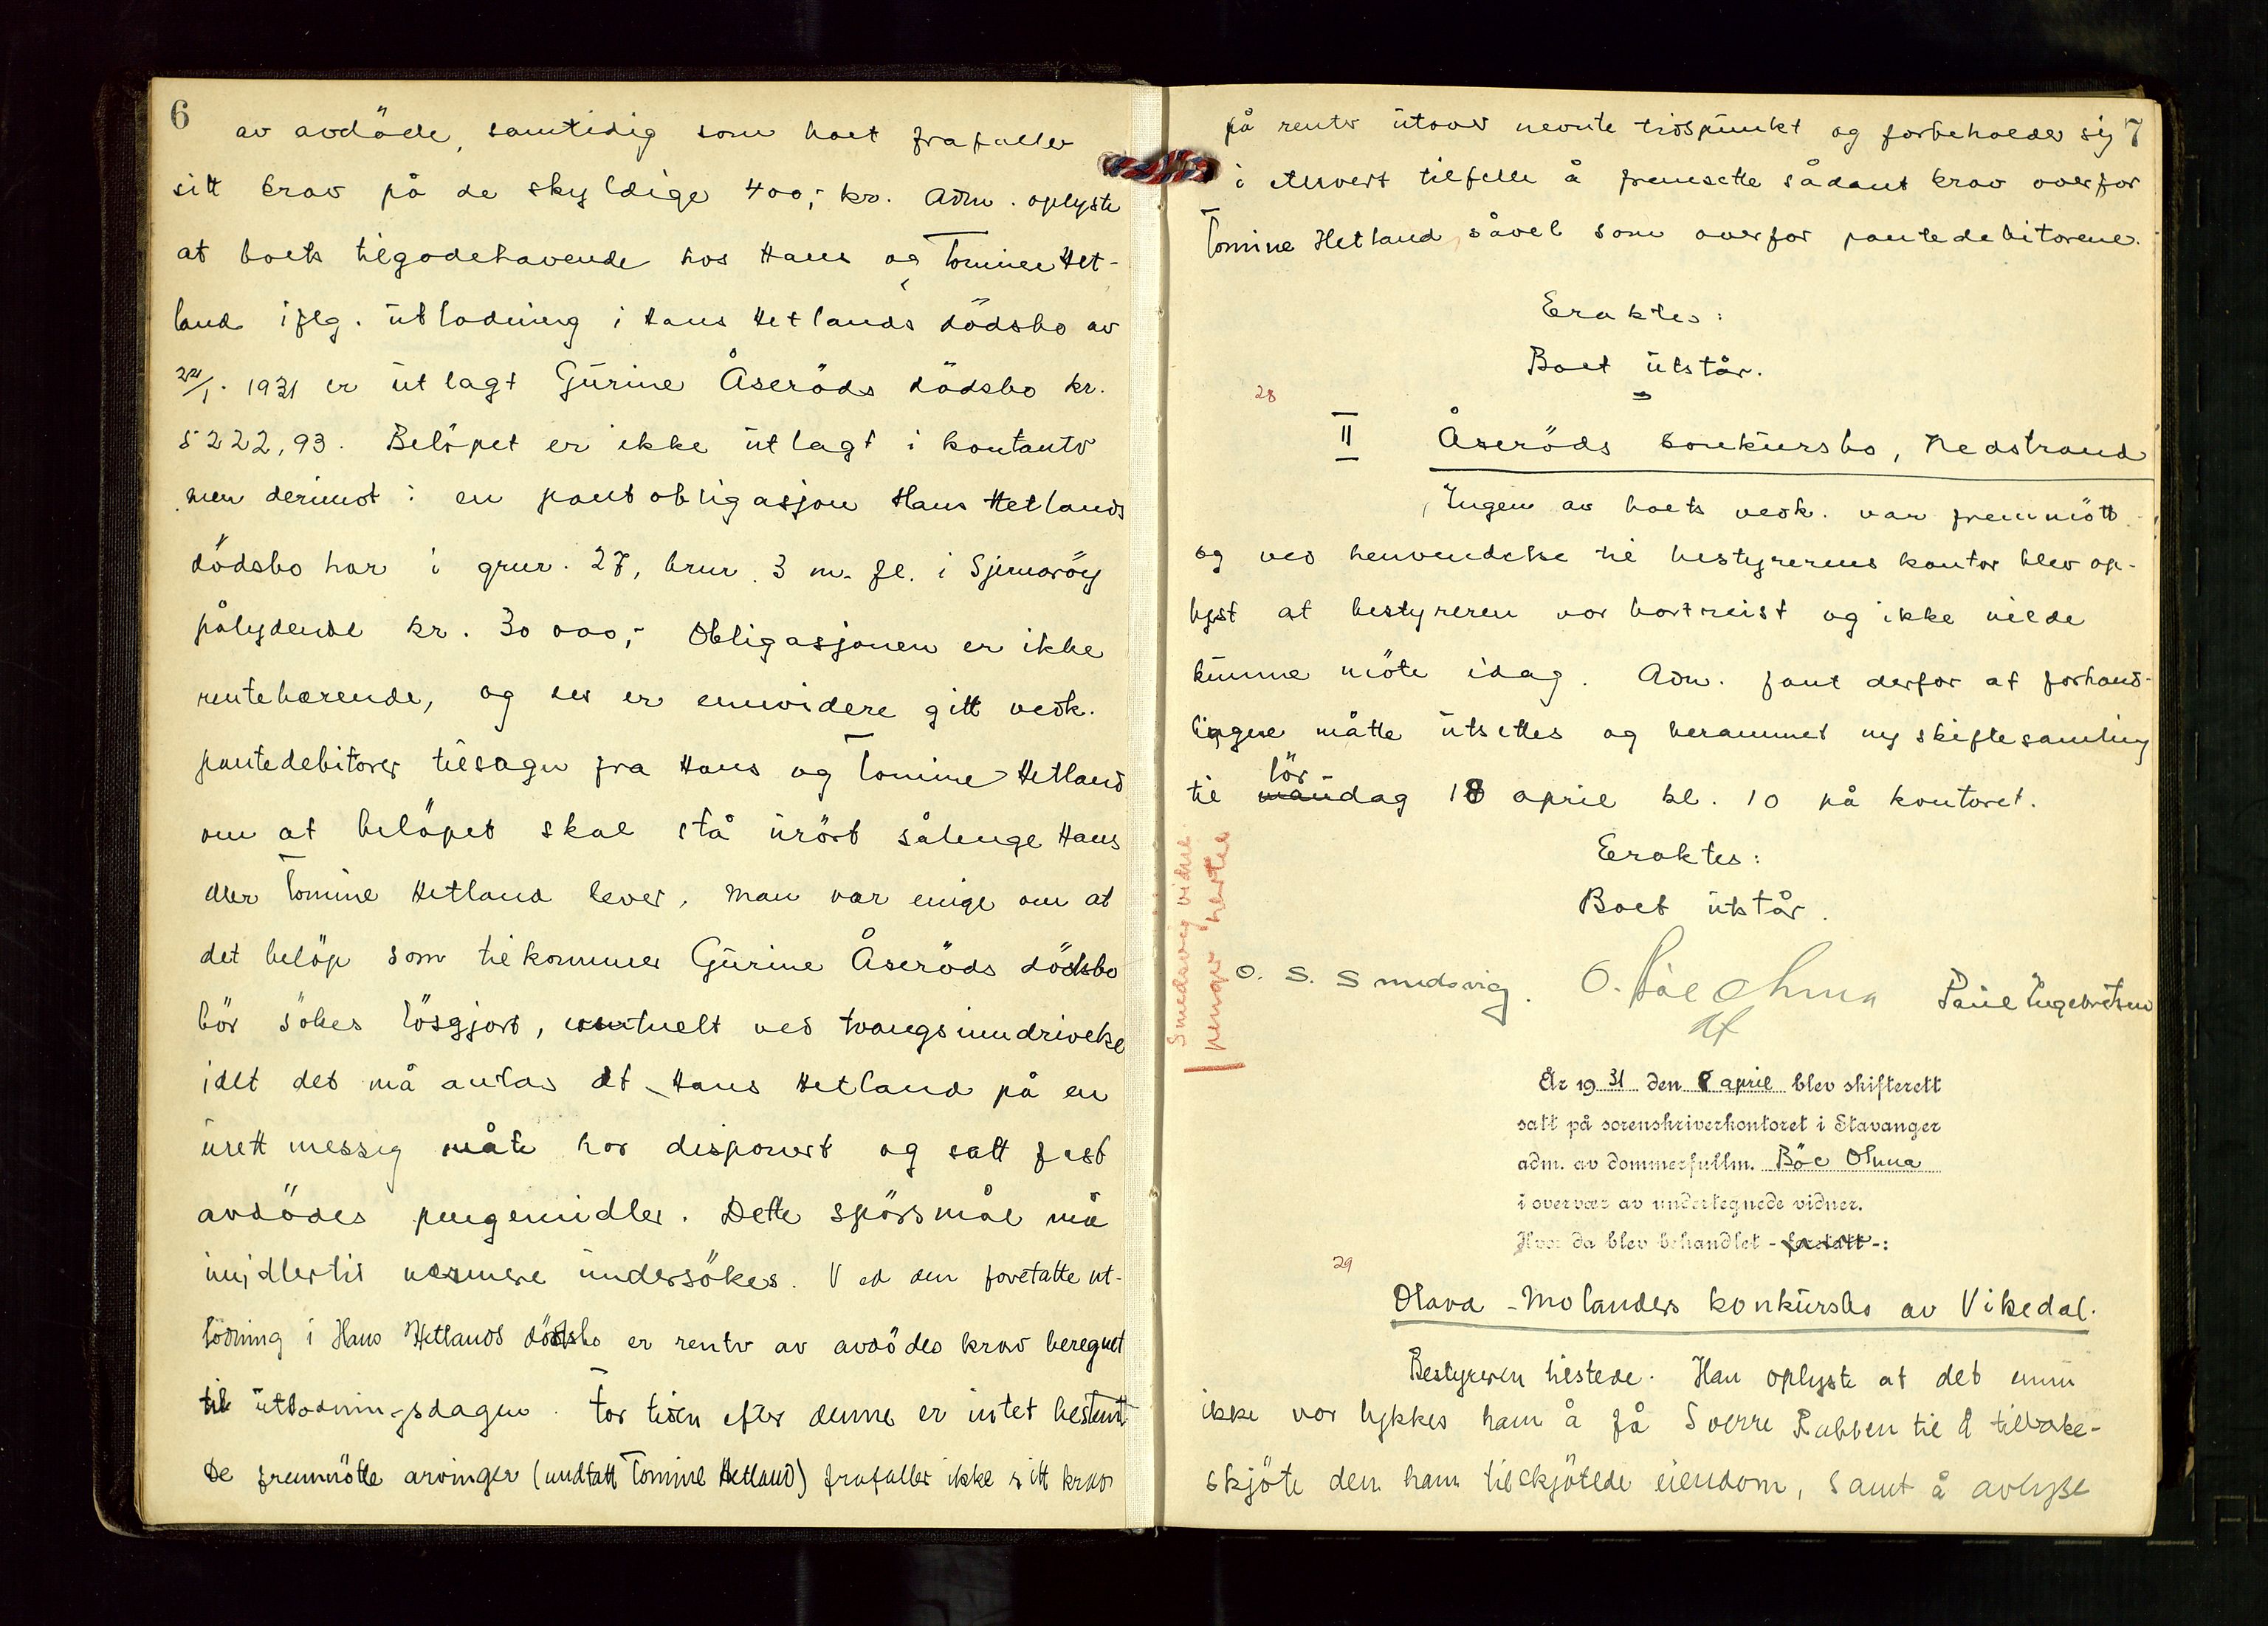 6
av avdöde, samtidig som boet frafaller
sitt krav på de skyldige 400,- kr. Adm. oplyste
at boets tilgodehavende hos Hans og Tomine Het-
land iflg. utlodning i Hans Hetlands dödsbo av
22/1. 1931 er utlagt Gurine Åseröds dödsbo kr.
5222,93. Belöpet er ikke utlagt i kontanter
men derimot i en pantobligasjon Hans Hetlands
dödsbo har i grnr. 27, brnr. 3 m. fl. i Sjernaröy
pålydende kr. 30 000,- Obligasjonen er ikke
rentebærende, og der er envidere gitt vedk.
pantedebitorer tilsagn fra Hans og Tomine Hetland
om at belöpet skal stå urört sålenge Hans
eller Tomine Hetland lever. Man var enige om at
det belöp som tilkommer Gurine Åseröds dödsbo
bör sökes lösgjort, eventuelt ved tvangsinndrivelse
idet det må antas at Hans Hetland på en
urettmessig måte har disponert og satt fast
avdödes pengemidler. Dette spörsmål må
imidlertid nærmere undersökes. Ved den foretatte ut-
lodning i Hans Hetlands dödsbo er renter av avdödes krav beregnet
til utlodningsdagen. For tiden efter denne er intet bestemt
De fremmötte arvinger (undtatt Tomine Hetland) frafaller ikke sitt krav
7
på renter utover nevnte tidspunkt og forbeholder sig
i ethvert tilfelle å fremsette sådant krav overfor
Tomine Hetland, såvel som overfor pantedebitorene.
Eraktes:
Boet utstår.
28
II Åseröds konkursbo, Nedstrand
Ingen av boets vedk. var fremmött
og ved henvendelse til bestyrerens kontor blev op-
lyst at bestyreren var bortreist og ikke vilde
kunne möte idag. Adm. fant derfor at forhand-
lingene måtte utsettes og berammet ny skiftesamling
lör
til mandag 18 april kl. 10 på kontoret.
Eraktes:
Boet utstår.
Smedsvig vidne
penger hertil
O. S. Smedsvig. O. Böe Ohma Paul Engebretsen
df
År 1931 den 8 april blev skifterett
satt på sorenskriverkontoret i Stavanger
adm. av dommerfullm. Böe Ohma
i overvær av undertegnede vidner.
Hvor da blev behandlet - foretatt -:
29
Olava Molanders konkursbo av Vikedal.
Bestyreren tilstede. Han oplyste at det ennu
ikke var lykkes ham å få Sverre Rabben til å tilbake-
skjöte den ham tilskjötede eiendom, samt å avlyse